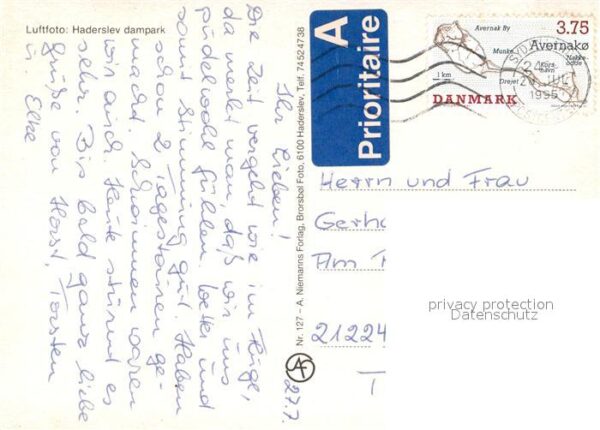 Luftfoto: Haderslev dampark
27.7.
Ihr Lieben!
Die Zeit vergeht wie im Fluge,
da merkt man, daß wir uns
pudelwohl fühlen. Wetter und
sonst Stimmung gut. Haben
schon 2 Tagestouren ge-
macht. Schwimmen waren
wir auch. Heute stürmt es
sehr. Bis bald ganz liebe
Grüße von Horst, Torsten
u. Elke
Nr. 127 – A. Niemanns Forlag, Brorsbøl Foto, 6100 Haderslev, Telf. 74524736
A
Prioritaire
Avernak By
3.75
Avernakø
Munke
Korshavn
Nakkeodde
1 km
Drejet
DANMARK
1995
Herrn und Frau
Gerha
Am
21224
privacy protection
Datenschutz